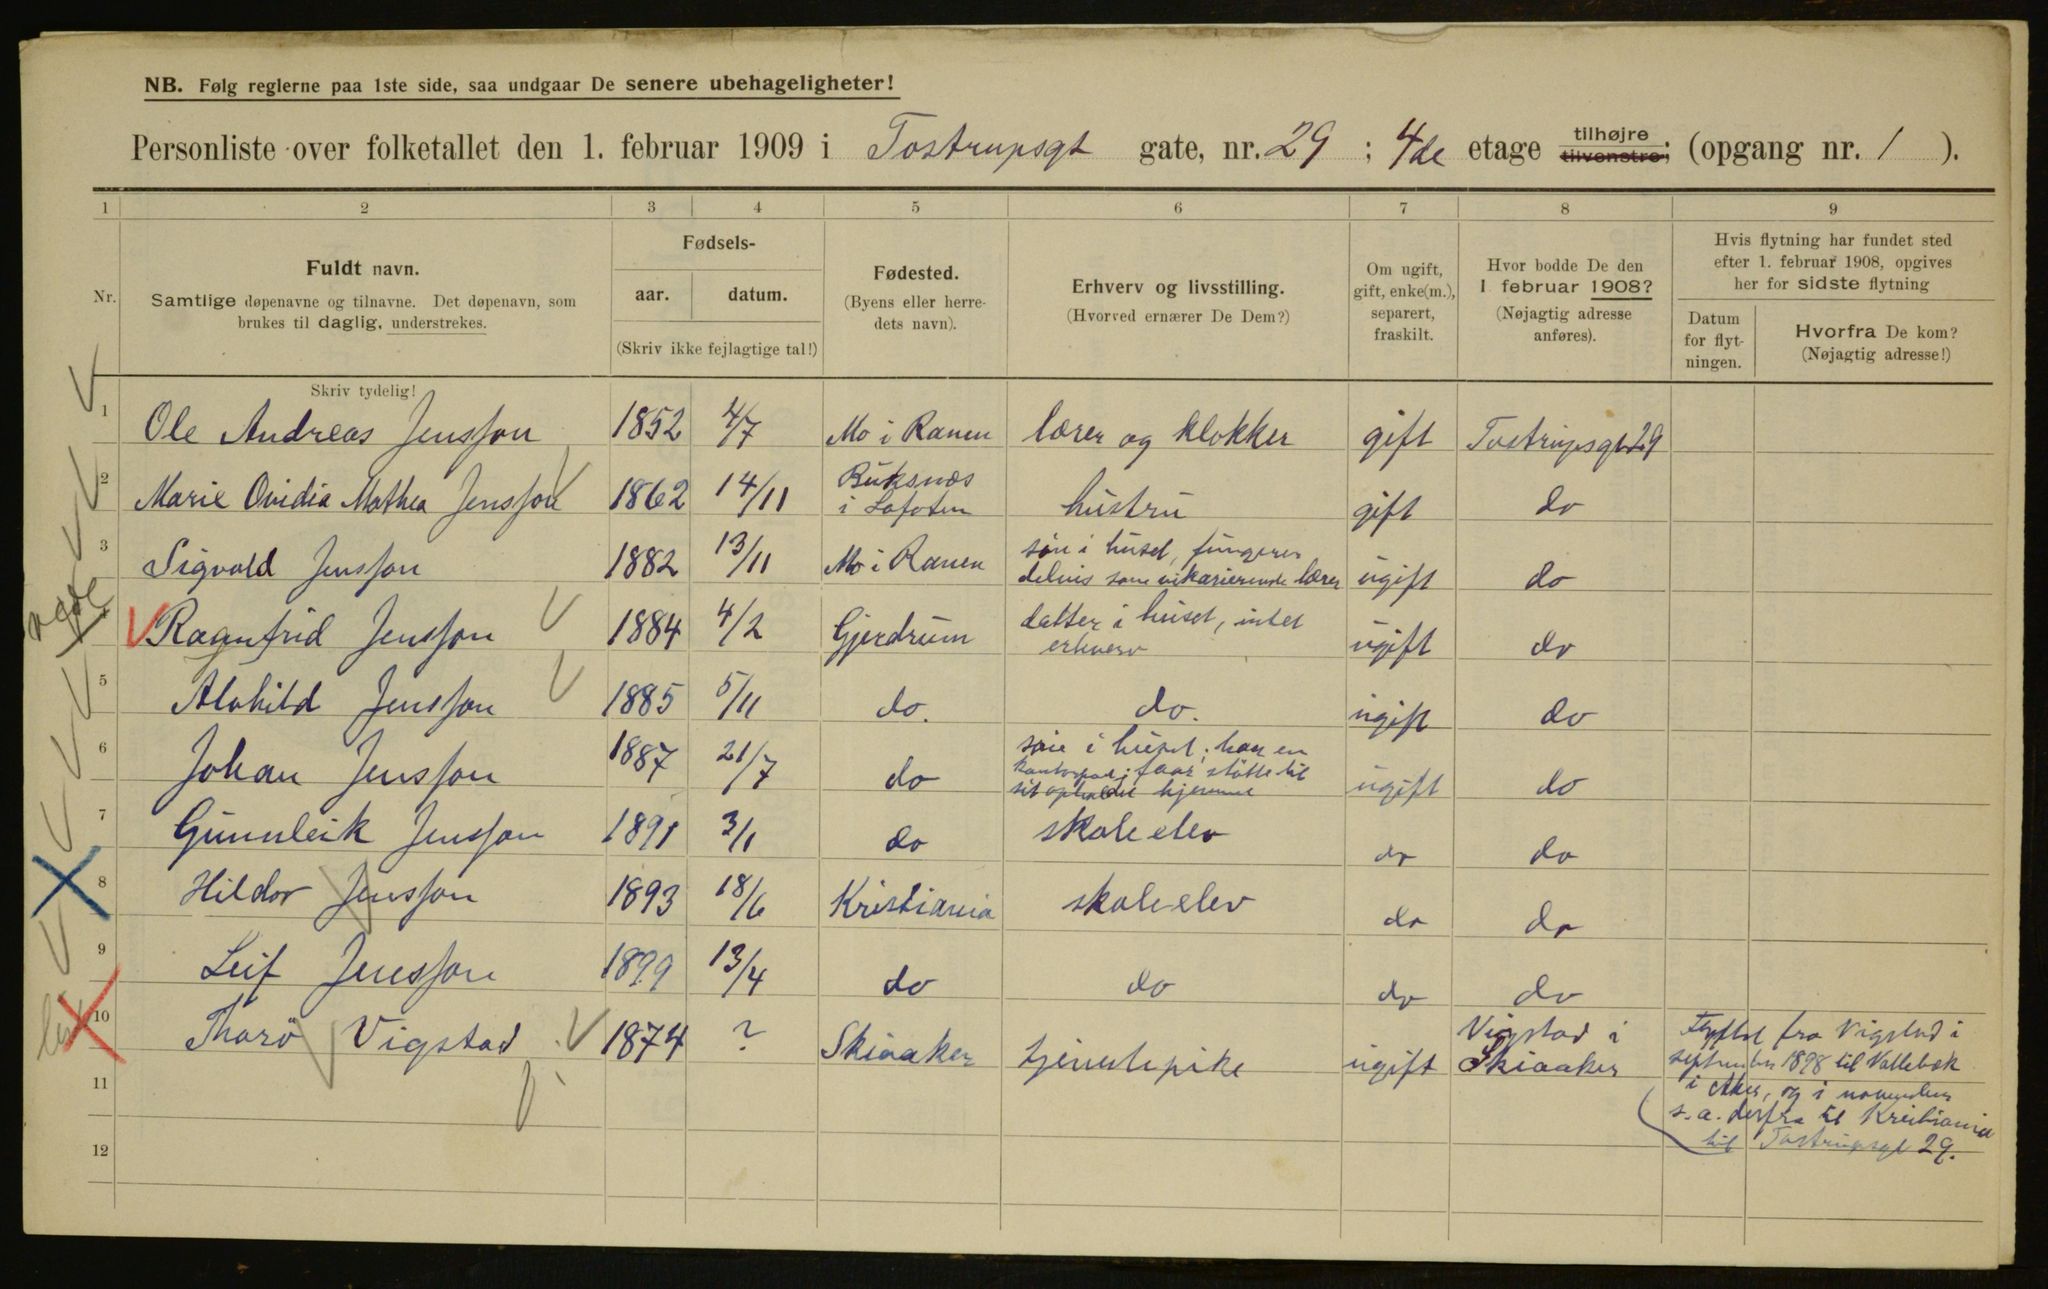 NB. Følg reglerne paa 1ste side, saa undgaar De senere ubehageligheter!
Personliste over folketallet den 1. februar 1909 i Tostrupsgt gate, nr. 29 ; 4de etage tilhøjre tilvenstre; (opgang nr. 1 ).
1 2 3 4 5 6 7 8 9
Nr.
Fuldt navn.
Samtlige døpenavne og tilnavne. Det døpenavn, som
brukes til daglig, understrekes.
Fødsels-
aar. datum.
(Skriv ikke fejlagtige tal!)
Fødested.
(Byens eller herre-
dets navn).
Erhverv og livsstilling.
(Hvorved ernærer De Dem?)
Om ugift,
gift, enke(m.),
separert,
fraskilt.
Hvor bodde De den
1 februar 1908?
(Nøjagtig adresse
anføres).
Hvis flytning har fundet sted
efter 1. februar 1908, opgives
her for sidste flytning
Datum
for flyt-
ningen.
Hvorfra De kom?
(Nøjagtig adresse!)
Skriv tydelig!
1 Ole Andreas Jensson 1852 4/7 Mo i Ranen lærer og klokker gift Tostrupsgt 29
2 Marie Ovidia Mathea Jensson 1862 14/11 Buksnæs i Lofoten hustru gift do
3 Sigvald Jensson 1882 13/11 Mo i Ranen søn i huset, fungerer
delvis som vikarierende lærer ugift do
Ragnfrid Jensson 1884 4/2 Gjerdrum datter i huset, intet
erhverv ugift do
5 Alvhild Jensson 1885 5/11 do. do. ugift do
6 Johan Jensson 1887 21/7 do søn i huset; har en
kontorpost; faar støtte til
sit ophold i hjemmet ugift do
7 Gunnleik Jensson 1891 3/1 do skoleelev do do
8 Hildor Jensson 1893 18/6 Kristiania skoleelev do do
9 Leif Jensson 1899 13/4 do do do do
10 Tharø Vigstad 1874 ? Skiaaker tjenestepike ugift Vigstad i
Skiaaker
Flyttet fra Vigstad i
september 1898 til Vallebæk
i Aker, og i november
s. a. derfra til Kristiania
til Tostrupsgt 29.
11
12